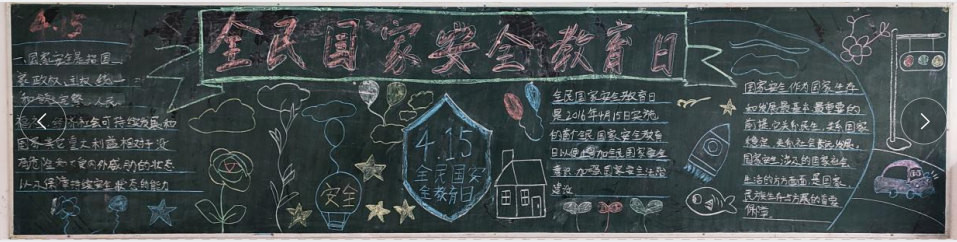 4.15
全民国家安全教育日
国家安全是指国
家政权、主权、统一
和领土完整、人民
经济社会可持续发展和
国家其它重大利益相对于没
有危险和不受内外威胁的状态
以及保障持续安全状态的能力
安全
4.15
全民国安
全教育日
全民国家安全教育日
是2016年4月15日实施
的前全民国家安全教育
日以便增加全民国家安全
意识加强国家安全法治
建设
国家安全作为国家生存
和发展最基本最重要的
前提,它关系民生,关系国家
稳定,关系社会
国家安全涉及的国家社会
生活的方方面面,是国家、
民族生存与发展的首要
保障。